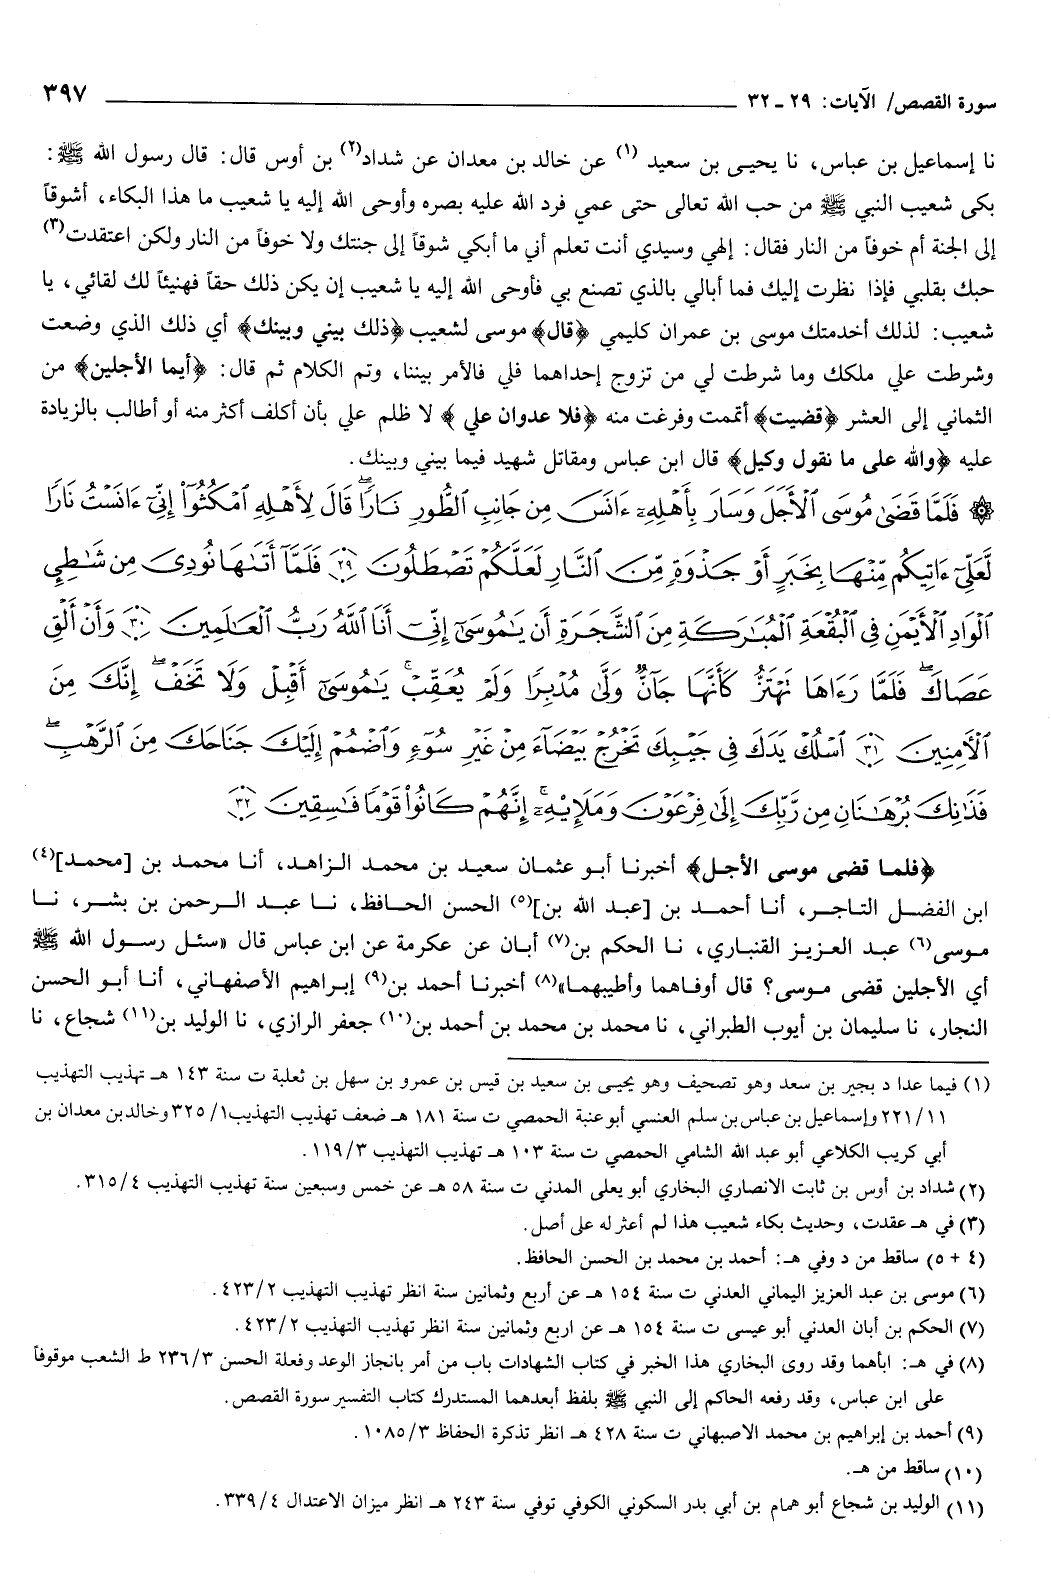 سورة القصص/ الآيات: ٢٩ ـ ٣٢ ٣٩٧
نا إسماعيل بن عباس، نا يحيى بن سعيد (١) عن خالد بن معدان عن شداد(٢) بن أوس قال: قال رسول الله ﷺ:
بكى شعيب النبي ﷺ من حب الله تعالى حتى عمي فرد الله عليه بصره وأوحى الله إليه يا شعيب ما هذا البكاء، أشوقاً
إلى الجنة أم خوفاً من النار فقال: إلهي وسيدي أنت تعلم أني ما أبكي شوقاً إلى جنتك ولا خوفاً من النار ولكن اعتقدت(٣)
حبك بقلبي فإذا نظرت إليك فما أبالي بالذي تصنع بي فأوحى الله إليه يا شعيب إن يكن ذلك حقاً فهنيئاً لك لقائي، يا
شعيب: لذلك أخدمتك موسى بن عمران كليمي ﴿قال﴾ موسى لشعيب ﴿ذلك بيني وبينك﴾ أي ذلك الذي وضعت
وشرطت علي ملكك وما شرطت لي من تزوج إحداهما فلي فالأمر بيننا، وتم الكلام ثم قال: ﴿أيما الأجلين﴾ من
الثماني إلى العشر ﴿قضيت﴾ أتممت وفرغت منه ﴿فلا عدوان علي﴾ لا ظلم علي بأن أكلف أكثر منه أو أطالب بالزيادة
عليه ﴿والله على ما نقول وكيل﴾ قال ابن عباس ومقاتل شهيد فيما بيني وبينك.
۞ فَلَمَّا قَضَىٰ مُوسَى ٱلْأَجَلَ وَسَارَ بِأَهْلِهِۦٓ ءَانَسَ مِن جَانِبِ ٱلطُّورِ نَارًاۖ قَالَ لِأَهْلِهِ ٱمْكُثُوٓا۟ إِنِّىٓ ءَانَسْتُ نَارًا
لَّعَلِّىٓ ءَاتِيكُم مِّنْهَا بِخَبَرٍ أَوْ جَذْوَةٍ مِّنَ ٱلنَّارِ لَعَلَّكُمْ تَصْطَلُونَ ﴿٢٩﴾ فَلَمَّآ أَتَىٰهَا نُودِىَ مِن شَـٰطِئِ
ٱلْوَادِ ٱلْأَيْمَنِ فِى ٱلْبُقْعَةِ ٱلْمُبَـٰرَكَةِ مِنَ ٱلشَّجَرَةِ أَن يَـٰمُوسَىٰٓ إِنِّىٓ أَنَا ٱللَّهُ رَبُّ ٱلْعَـٰلَمِينَ ﴿٣٠﴾ وَأَنْ أَلْقِ
عَصَاكَۖ فَلَمَّا رَءَاهَا تَهْتَزُّ كَأَنَّهَا جَآنٌّ وَلَّىٰ مُدْبِرًا وَلَمْ يُعَقِّبْۚ يَـٰمُوسَىٰٓ أَقْبِلْ وَلَا تَخَفْۖ إِنَّكَ مِنَ
ٱلْـَٔامِنِينَ ﴿٣١﴾ ٱسْلُكْ يَدَكَ فِى جَيْبِكَ تَخْرُجْ بَيْضَآءَ مِنْ غَيْرِ سُوٓءٍ وَٱضْمُمْ إِلَيْكَ جَنَاحَكَ مِنَ ٱلرَّهْبِۖ
فَذَٰنِكَ بُرْهَـٰنَانِ مِن رَّبِّكَ إِلَىٰ فِرْعَوْنَ وَمَلَإِي۟هِۦٓۚ إِنَّهُمْ كَانُوا۟ قَوْمًا فَـٰسِقِينَ ﴿٣٢﴾
﴿فلما قضى موسى الأجل﴾ أخبرنا أبو عثمان سعيد بن محمد الزاهد، أنا محمد بن [محمد](٤)
ابن الفضل التاجر، أنا أحمد بن [عبد الله بن](٥) الحسن الحافظ، نا عبد الرحمن بن بشر، نا
موسى(٦) عبد العزيز القنباري، نا الحكم بن(٧) أبان عن عكرمة عن ابن عباس قال «سئل رسول الله ﷺ
أي الأجلين قضى موسى؟ قال أوفاهما وأطيبهما»(٨) أخبرنا أحمد بن(٩) إبراهيم الأصفهاني، أنا أبو الحسن
النجار، نا سليمان بن أيوب الطبراني، نا محمد بن محمد بن أحمد بن(١٠) جعفر الرازي، نا الوليد بن(١١) شجاع، نا
(١) فيما عدا د بجير بن سعد وهو تصحيف وهو يحيى بن سعيد بن قيس بن عمرو بن سهل بن ثعلبة ت سنة ١٤٣ هـ تهذيب التهذيب
٢٢١/١١ وإسماعيل بن عباس بن سلم العنسي أبو عنبة الحمصي ت سنة ١٨١ هـ ضعف تهذيب التهذيب ٣٢٥/١ وخالد بن معدان بن
أبي كريب الكلاعي أبو عبد الله الشامي الحمصي ت سنة ١٠٣ هـ تهذيب التهذيب ١١٩/٣.
(٢) شداد بن أوس بن ثابت الانصاري البخاري أبو يعلى المدني ت سنة ٥٨ هـ عن خمس وسبعين سنة تهذيب التهذيب ٣١٥/٤.
(٣) في هـ عقدت، وحديث بكاء شعيب هذا لم أعثر له على أصل.
(٤ + ٥) ساقط من د وفي هـ: أحمد بن محمد بن الحسن الحافظ.
(٦) موسى بن عبد العزيز اليماني العدني ت سنة ١٥٤ هـ عن أربع وثمانين سنة انظر تهذيب التهذيب ٤٢٣/٢.
(٧) الحكم بن أبان العدني أبو عيسى ت سنة ١٥٤ هـ عن اربع وثمانين سنة انظر تهذيب التهذيب ٤٢٣/٢.
(٨) في هـ: ابأهما وقد روى البخاري هذا الخبر في كتاب الشهادات باب من أمر بانجاز الوعد وفعلة الحسن ٢٣٦/٣ ط الشعب موقوفاً
على ابن عباس، وقد رفعه الحاكم إلى النبي ﷺ بلفظ أبعدهما المستدرك كتاب التفسير سورة القصص.
(٩) أحمد بن إبراهيم بن محمد الاصبهاني ت سنة ٤٢٨ هـ انظر تذكرة الحفاظ ١٠٨٥/٣.
(١٠) ساقط من هـ.
(١١) الوليد بن شجاع أبو همام بن أبي بدر السكوني الكوفي توفي سنة ٢٤٣ هـ انظر ميزان الاعتدال ٣٣٩/٤.